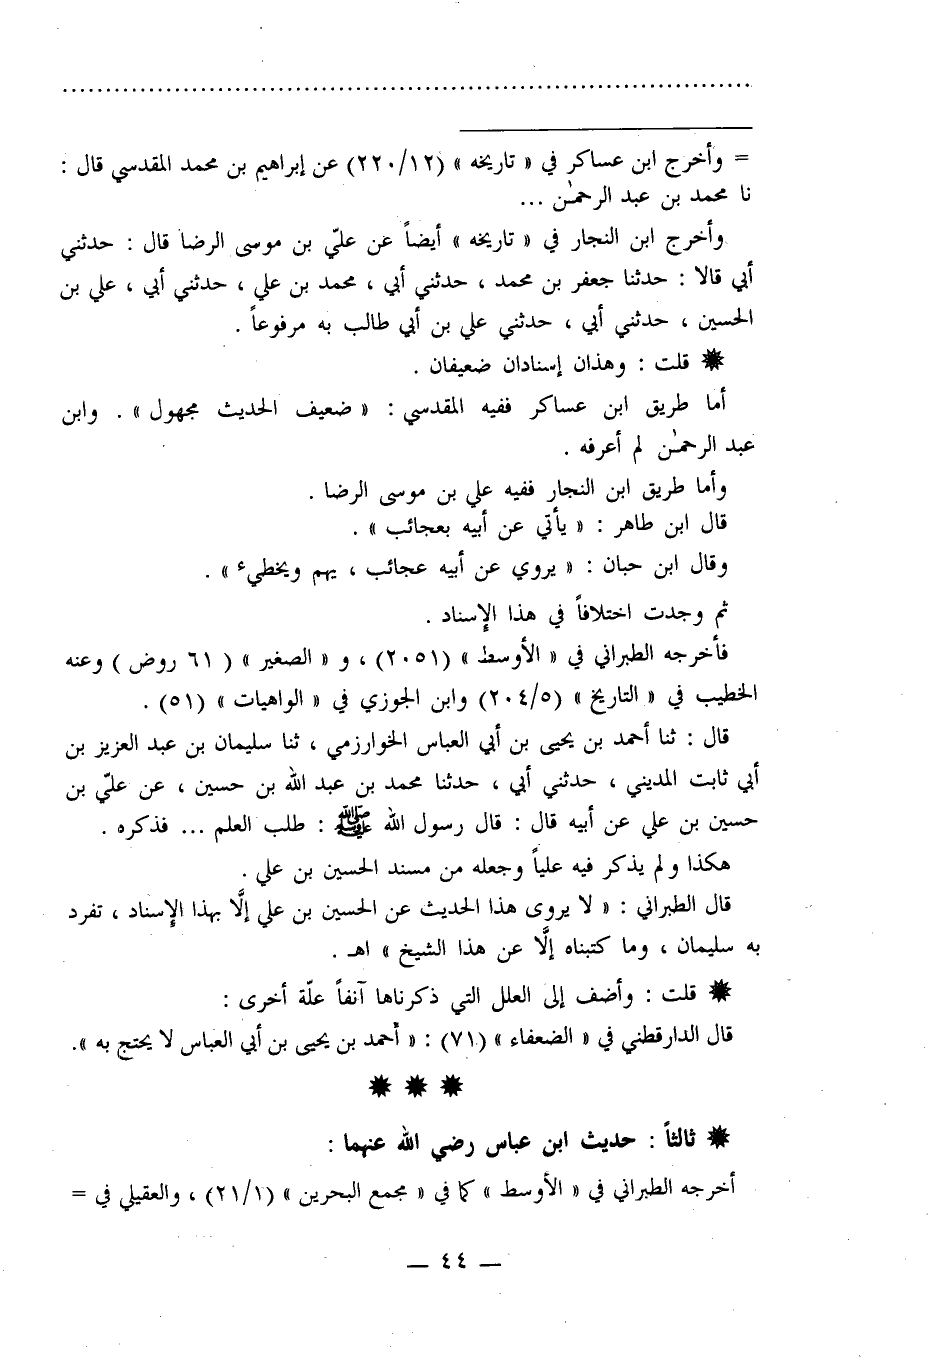 = وأخرج ابن عساكر في « تاريخه » (٢٢٠/١٢) عن إبراهيم بن محمد المقدسي قال :
نا محمد بن عبد الرحمٰن ...
وأخرج ابن النجار في « تاريخه » أيضاً عن عليّ بن موسى الرضا قال : حدثني
أبي قالا : حدثنا جعفر بن محمد ، حدثني أبي ، محمد بن علي ، حدثني أبي ، علي بن
الحسين ، حدثني أبي ، حدثني علي بن أبي طالب به مرفوعاً .
✹ قلت : وهذان إسنادان ضعيفان .
أما طريق ابن عساكر ففيه المقدسي : « ضعيف الحديث مجهول » . وابن
عبد الرحمٰن لم أعرفه .
وأما طريق ابن النجار ففيه علي بن موسى الرضا .
قال ابن طاهر : « يأتي عن أبيه بعجائب » .
وقال ابن حبان : « يروي عن أبيه عجائب ، يهم ويخطيء » .
ثم وجدت اختلافاً في هذا الإسناد .
فأخرجه الطبراني في « الأوسط » (٢٠٥١) ، و « الصغير » ( ٦١ روض ) وعنه
الخطيب في « التاريخ » (٢٠٤/٥) وابن الجوزي في « الواهيات » (٥١) .
قال : ثنا أحمد بن يحيى بن أبي العباس الخوارزمي ، ثنا سليمان بن عبد العزيز بن
أبي ثابت المديني ، حدثني أبي ، حدثنا محمد بن عبد الله بن حسين ، عن عليّ بن
حسين بن علي عن أبيه قال : قال رسول الله ﷺ : طلب العلم ... فذكره .
هكذا ولم يذكر فيه علياً وجعله من مسند الحسين بن علي .
قال الطبراني : « لا يروى هذا الحديث عن الحسين بن علي إلَّا بهذا الإسناد ، تفرد
به سليمان ، وما كتبناه إلَّا عن هذا الشيخ » اهـ .
✹ قلت : وأضف إلى العلل التي ذكرناها آنفاً علّة أخرى :
قال الدارقطني في « الضعفاء » (٧١) : « أحمد بن يحيى بن أبي العباس لا يحتج به ».
✹ ✹ ✹
✹ ثالثاً : حديث ابن عباس رضي الله عنهما :
أخرجه الطبراني في « الأوسط » كما في « مجمع البحرين » (٢١/١) ، والعقيلي في =
— ٤٤ —